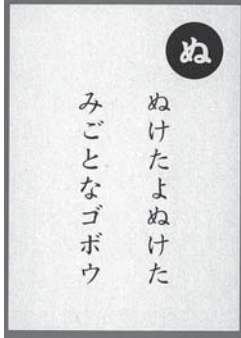 ぬ
ぬけたよぬけた
みごとなゴボウ